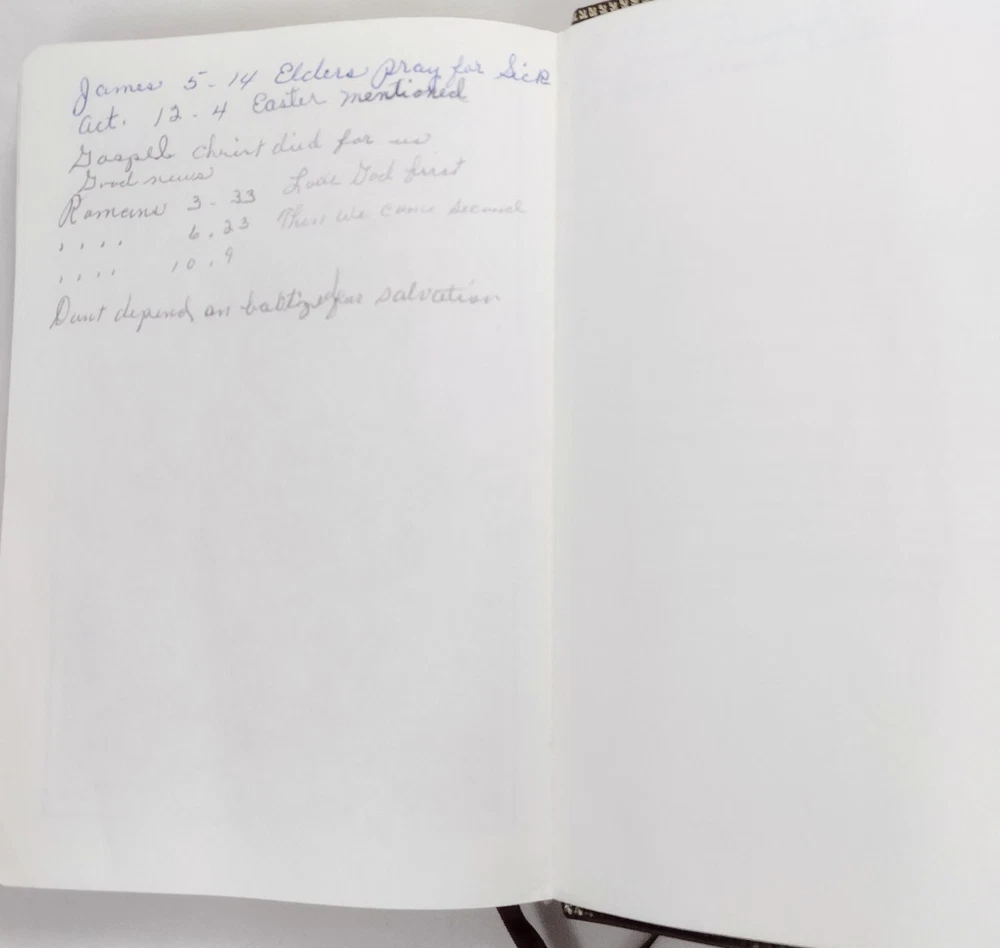 James 5-14 Elders pray for Sick
Act. 12-4 Easter mentioned
Gospel Christ died for us
Good news
Romans 3-33 Love God first
,,,, 6.23 Then we come second
,,,, 10.9
Dont depend on babtize for salvation